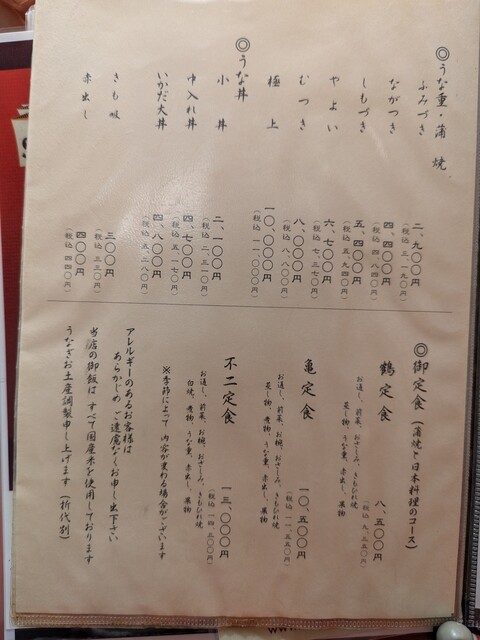 ◎うな重・蒲焼
ふみづき 二、九〇〇円
(税込 三、一九〇円)
ながつき 四、四〇〇円
(税込 四、八四〇円)
しもづき 五、四〇〇円
(税込 五、九四〇円)
やよい 六、七〇〇円
(税込 七、三七〇円)
むつき 八、〇〇〇円
(税込 八、八〇〇円)
極上 一〇、〇〇〇円
(税込 一一、〇〇〇円)
◎うな丼
小丼 二、一〇〇円
(税込 二、三一〇円)
中入れ丼 四、七〇〇円
(税込 五、一七〇円)
いかだ大丼 四、八〇〇円
(税込 五、二八〇円)
きも吸 三〇〇円
(税込 三三〇円)
赤出し 四〇〇円
(税込 四四〇円)
◎御定食(蒲焼と日本料理のコース)
鶴定食 八、五〇〇円
(税込 九、三五〇円)
お通し、前菜、お椀、おさしみ、きもひれ焼
蒸し物、煮物、うな重、赤出し、果物
亀定食 一〇、五〇〇円
(税込 一一、五五〇円)
お通し、前菜、お椀、おさしみ、きもひれ焼
蒸し物、煮物、うな重、赤出し、果物
不二定食 一三、〇〇〇円
(税込 一四、三〇〇円)
お通し、前菜、お椀、おさしみ、きもひれ焼
白焼、煮物、うな重、赤出し、果物
※季節によって 内容が変わる場合がございます
アレルギーのあるお客様は
あらかじめ ご遠慮なくお申し出下さい
当店の御飯は すべて国産米を使用しております
うなぎお土産調製申し上げます (折代別)
www.